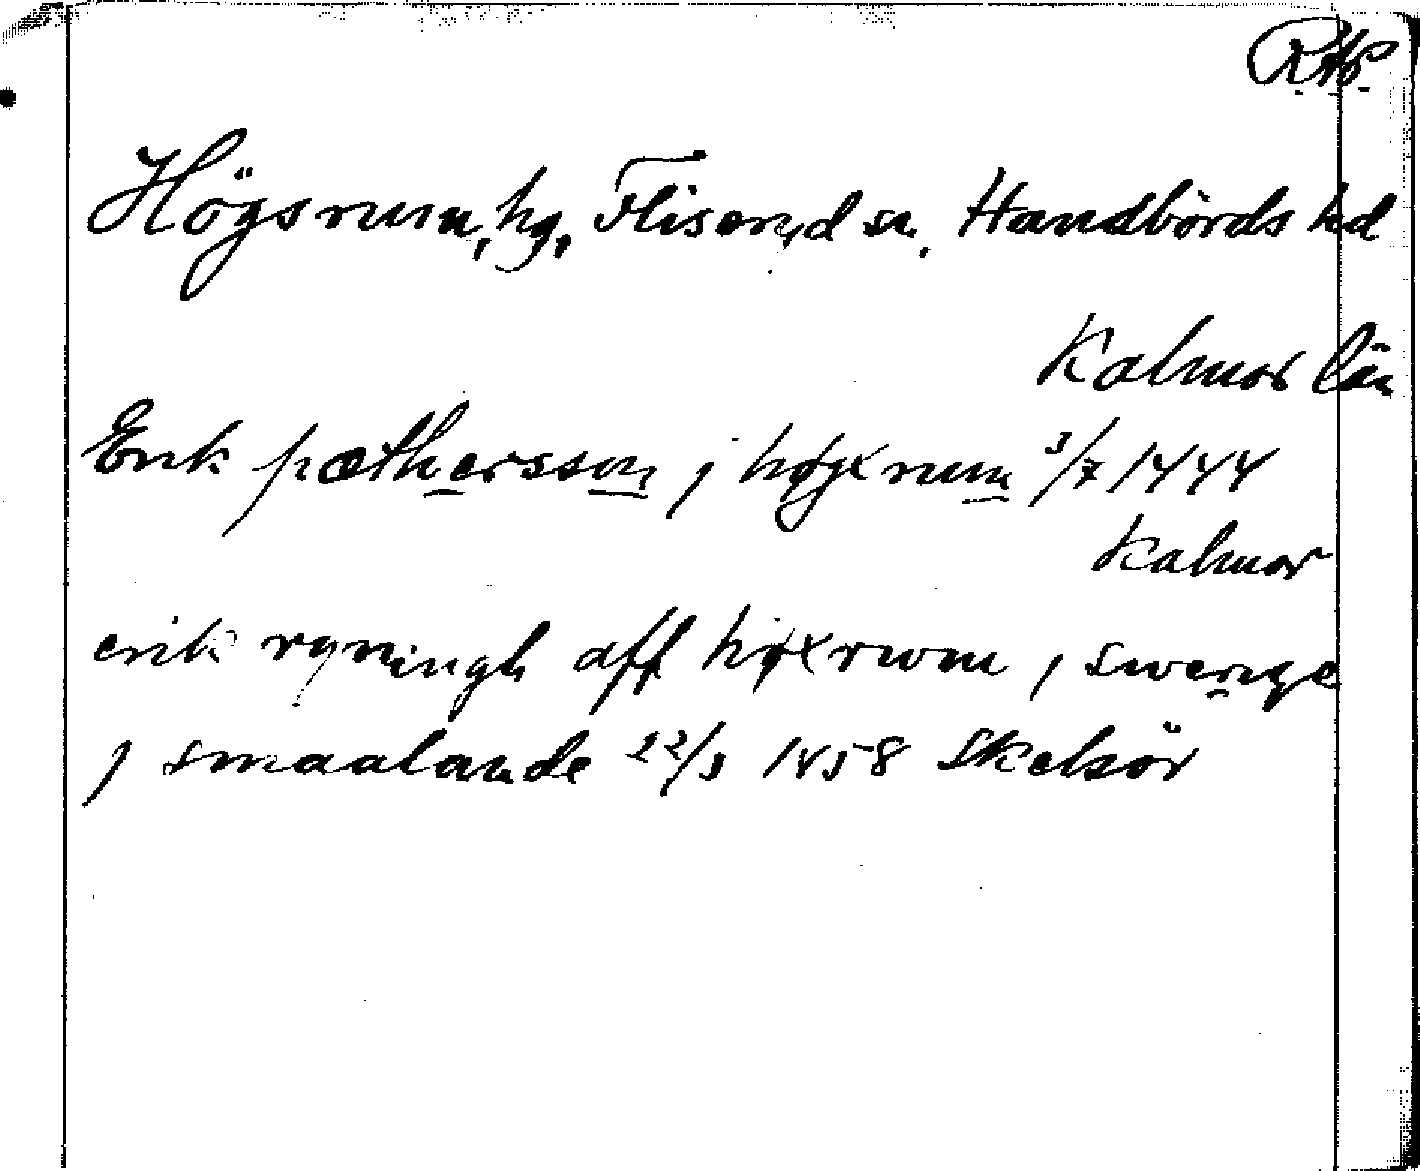 RAp.
Högsrum, hg, Fliseryd sn. Handbörds hd
Kalmar län
Erik pæthersson j høgxrum 3/7 1444
Kalmar
erik ryningh aff høxrwm j swerige
j smaalande 22/3 1458 Skelsör